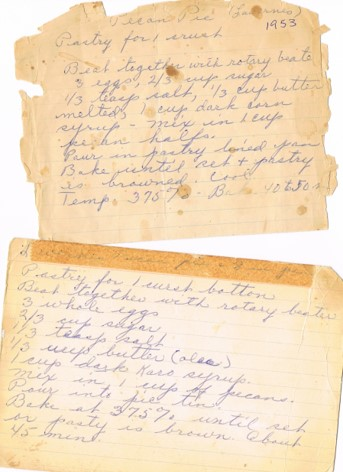 Pecan Pie
1953
Pastry for 1 crust
Beat together with rotary beater
3 eggs, 2/3 cup sugar
1/3 teasp salt, 1/3 cup butter
melted, 1 cup dark corn
syrup - mix in 1 cup
pecan halfs.
Pour in pastry lined pan
Bake until set + pastry
is browned. Cool
Temp 375% - Bake 40 to 50
Pastry for 1 curst botton
Beat together with rotary beater
3 whole eggs
2/3 cup sugar
1/3 teasp salt
1/3 cup butter (oleo)
1 cup dark Karo syrup.
Mix in 1 cup of pecans.
Pour into pie tin.
Bake at 375% until set
or pasty is brown. About
45 min.